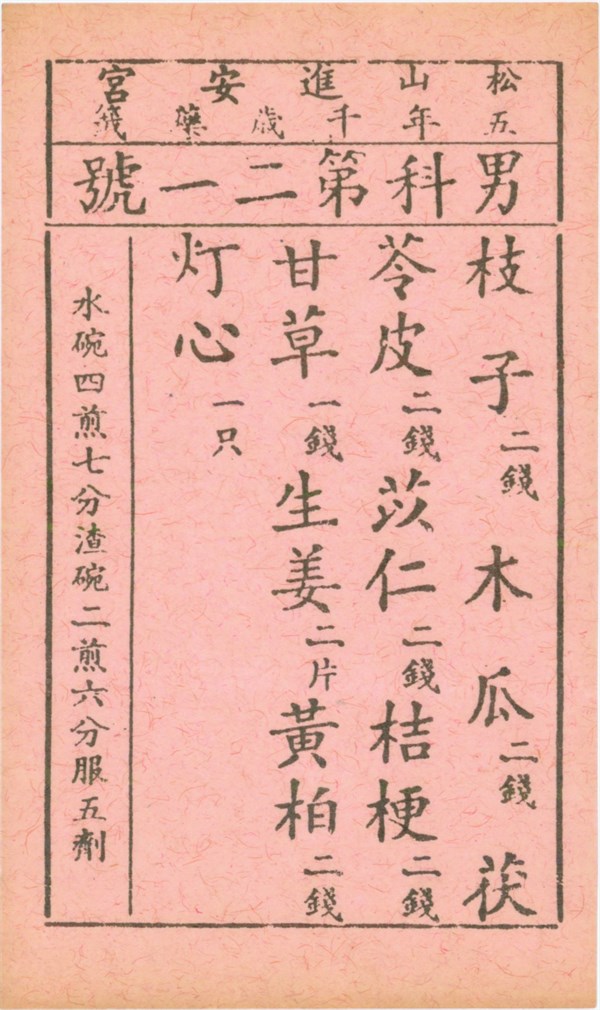 松山進安宮
五年千歲藥籤
男科第二一號
枝子二錢木瓜二錢茯
苓皮二錢苡仁二錢桔梗二錢
甘草一錢生姜二片黃柏二錢
灯心一只
水碗四煎七分渣碗二煎六分服五劑